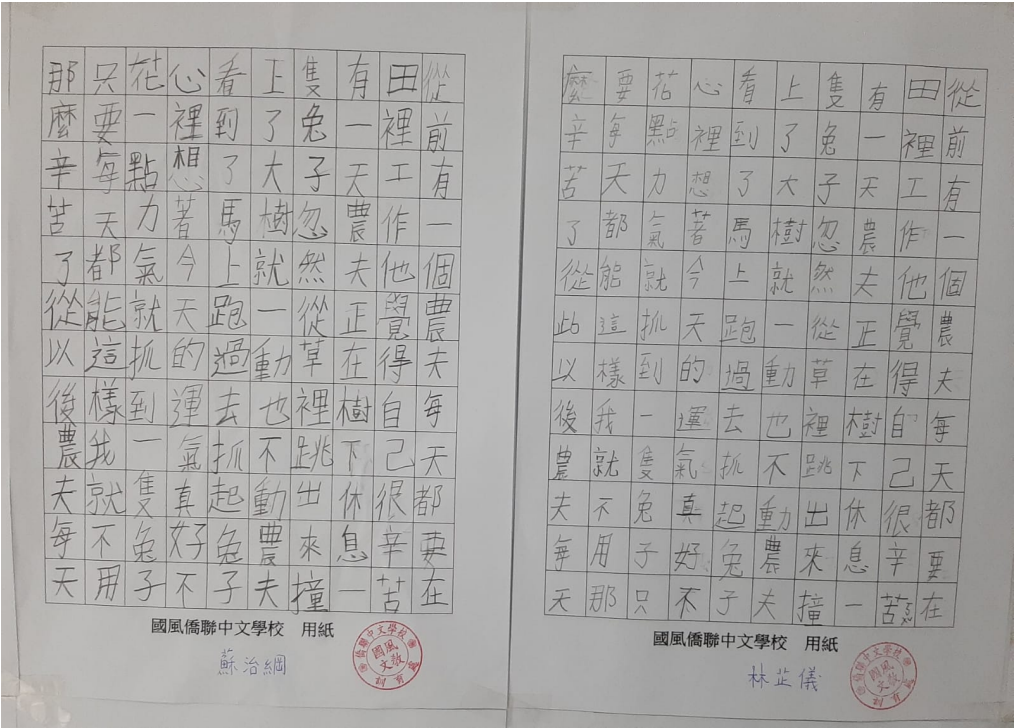 從前有一個農夫每天都要在
田裡工作他覺得自己很辛苦
有一天農夫正在樹下休息一
隻兔子忽然從草裡跳出來撞
上了大樹就一動也不動農夫
看到了馬上跑過去抓起兔子
心裡想著今天的運氣真好不
花一點力氣就抓到一隻兔子
只要每天都能這樣我就不用
那麼辛苦了從以後農夫每天
國風僑聯中文學校 用紙
蘇治綱
從前有一個農夫每天都要在
田裡工作他覺得自己很辛苦
有一天農夫正在樹下休息一
隻兔子忽然從草裡跳出來撞
上了大樹就一動也不動農夫
看到了馬上跑過去抓起兔子
心裡想著今天的運氣真好不
花點力氣就抓到一隻兔子只
要每天都能這樣我就不用那
麼辛苦了從此以後農夫每天
國風僑聯中文學校 用紙
林芷儀